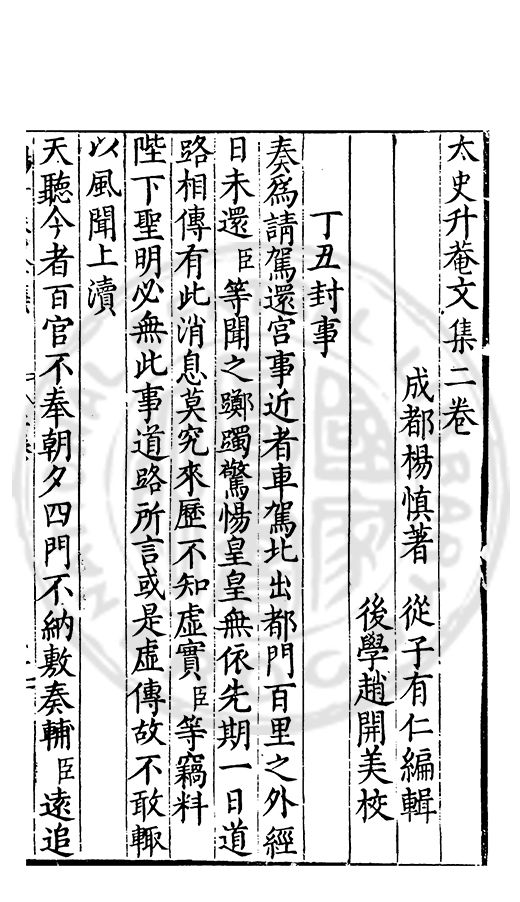 太史升菴文集二卷
成都楊慎著 從子有仁編輯
後學趙開美校
丁丑封事
奏爲請駕還宮事近者車駕北出都門百里之外經
日未還臣等聞之躑躅驚惕皇皇無依先期一日道
路相傳有此消息莫究來歷不知虛實臣等竊料
陛下聖明必無此事道路所言或是虛傳故不敢輙
以風聞上瀆
天聽今者百官不奉朝夕四門不納敷奏輔臣遠追